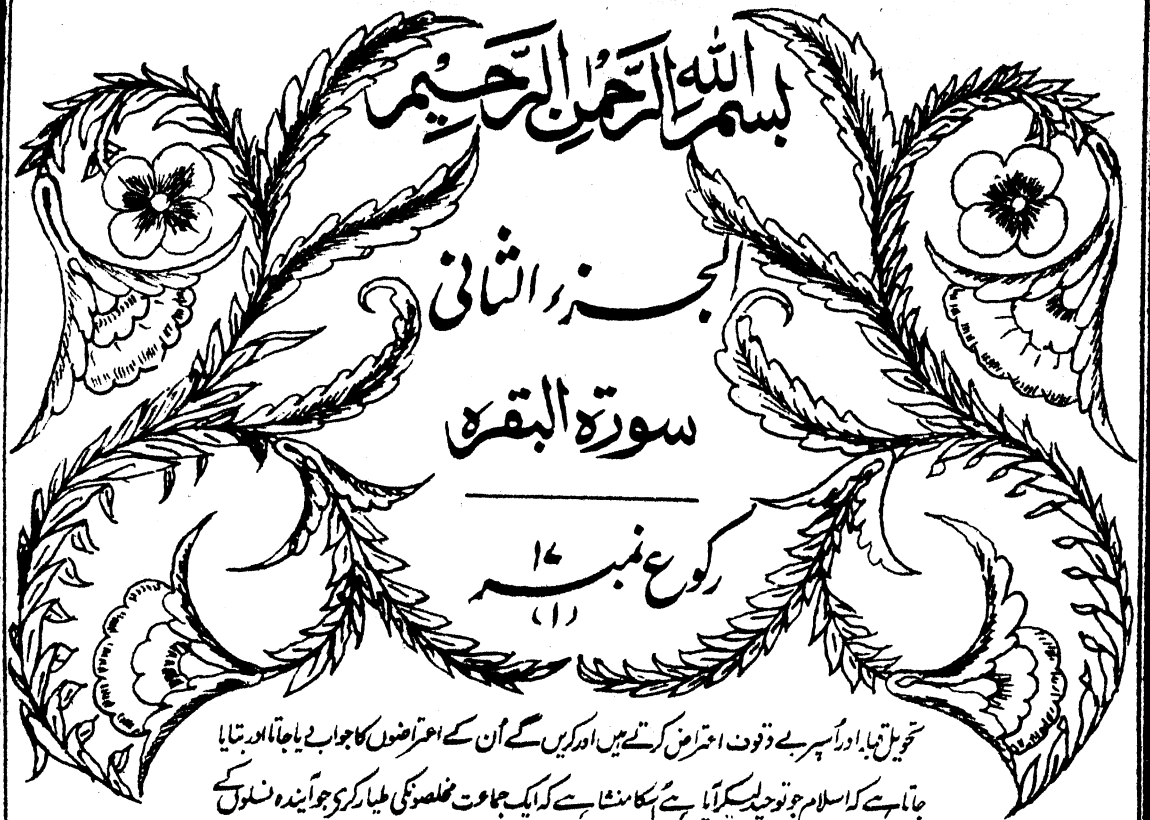 بسم الله الرَّحمٰنِ الرَّحِيْم
الجزء الثانی
سورة البقرہ
رکوع نمبر ۱۷
(۱)
تحویل قبلہ اور اُسپر بے وقوف اعتراض کرتے ہیں اور کریں گے اُن کے اعتراضوں کا جواب دیا جاتا اور بتایا
جاتا ہے کہ اسلام جو توحید لیکر آیا ہے اُسکا منشا ہے کہ ایک جماعت مخلصونکی طیار کری جو آیندہ نسلوں کے